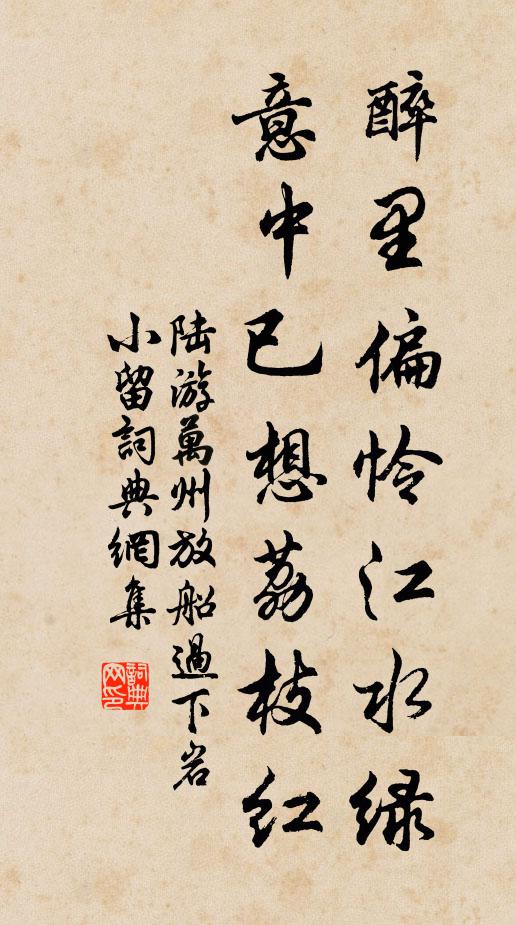 醉里偏怜江水绿
意中已想荔枝红
陆游萬州放船過下岩
小留詞典網集
詞典网印